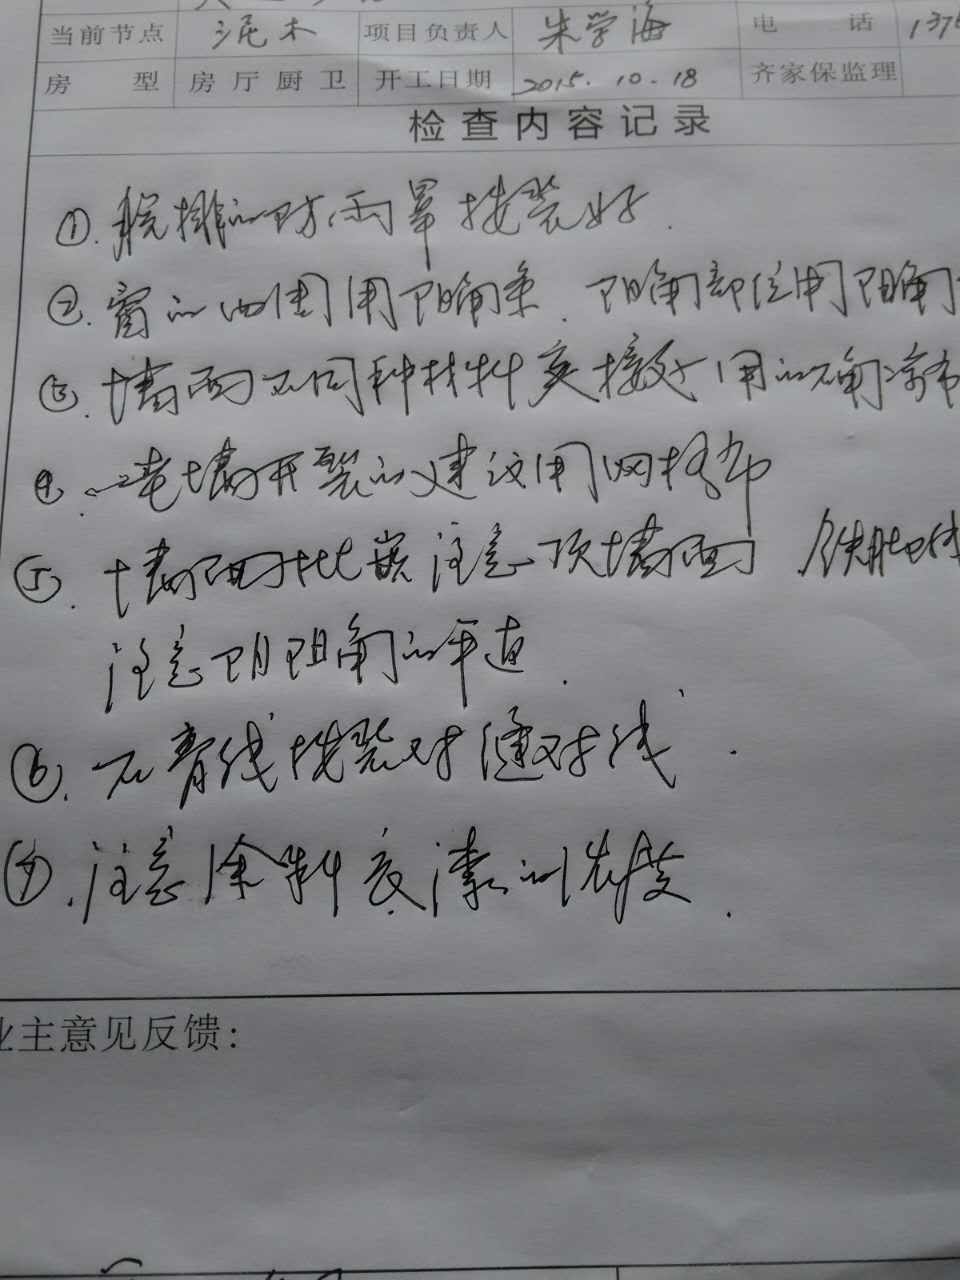 当前节点 泥木 项目负责人 朱学海 电话 137
房型 房厅厨卫 开工日期 2015.10.18 齐家保监理
检查内容记录
①.脱排的防雨罩按装好.
②.窗的四周用阳角条.阳角部位用阳角
③.墙面不同种材料交接处用的确凉布
④.老墙开裂的建议用网格布
⑤.墙面批嵌注意顶墙面
注意阴阳角的平直.
⑥.石膏线按装对缝对线.
⑦.注意涂料底漆的浓度.
业主意见反馈: